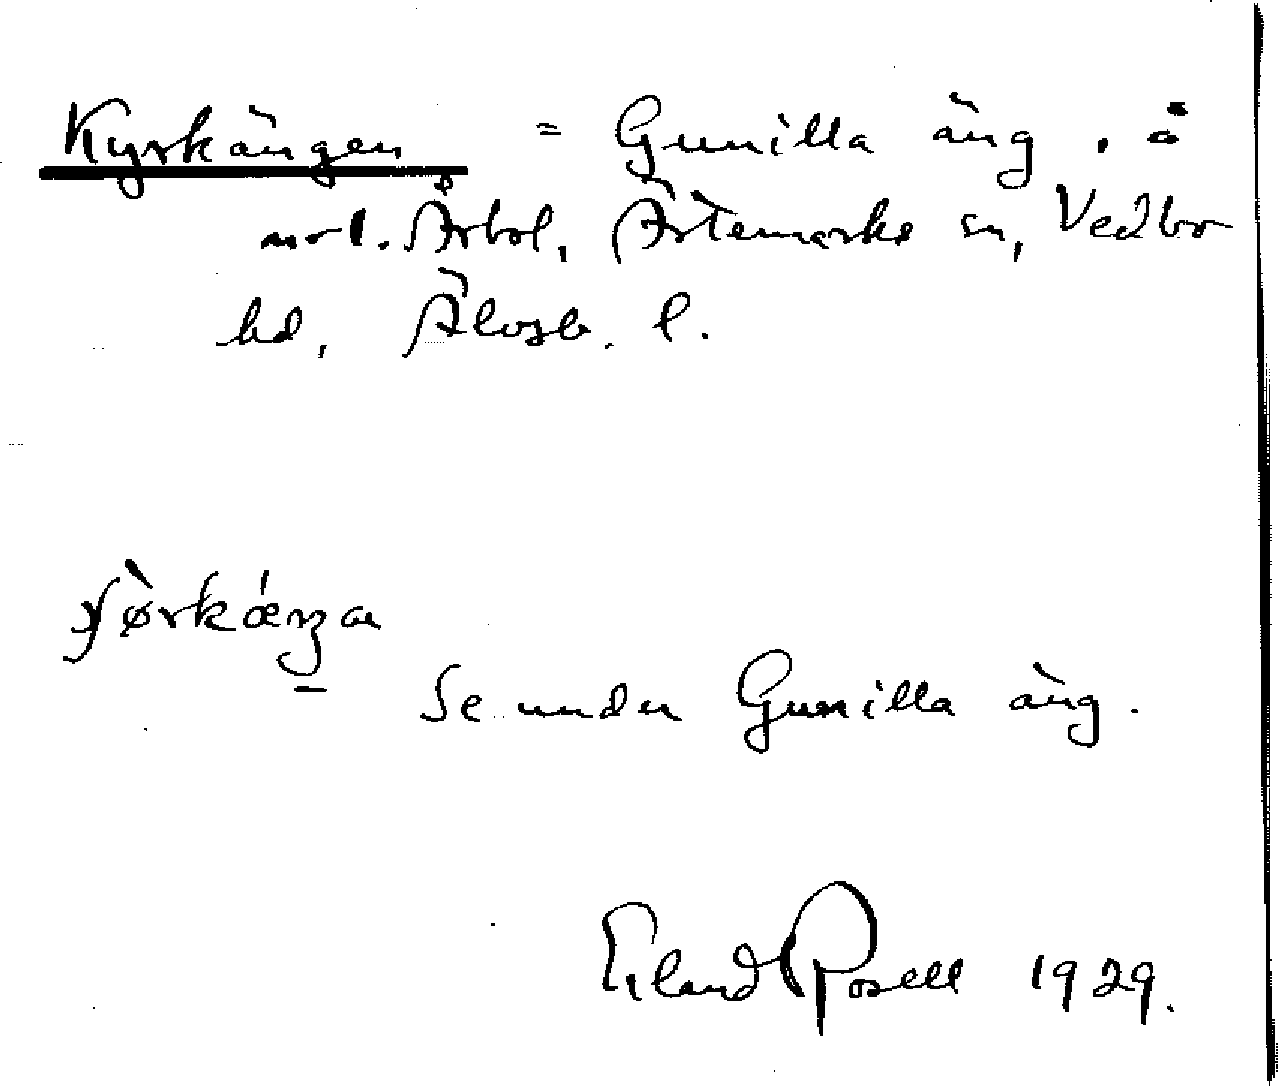 Kyrkängen = Gunilla äng, å
nr 1. Årbol, Ärtemarks sn, Vedbo
hd, Älvsb. l.
Se under Gunilla äng.
Erland Rosell 1929.